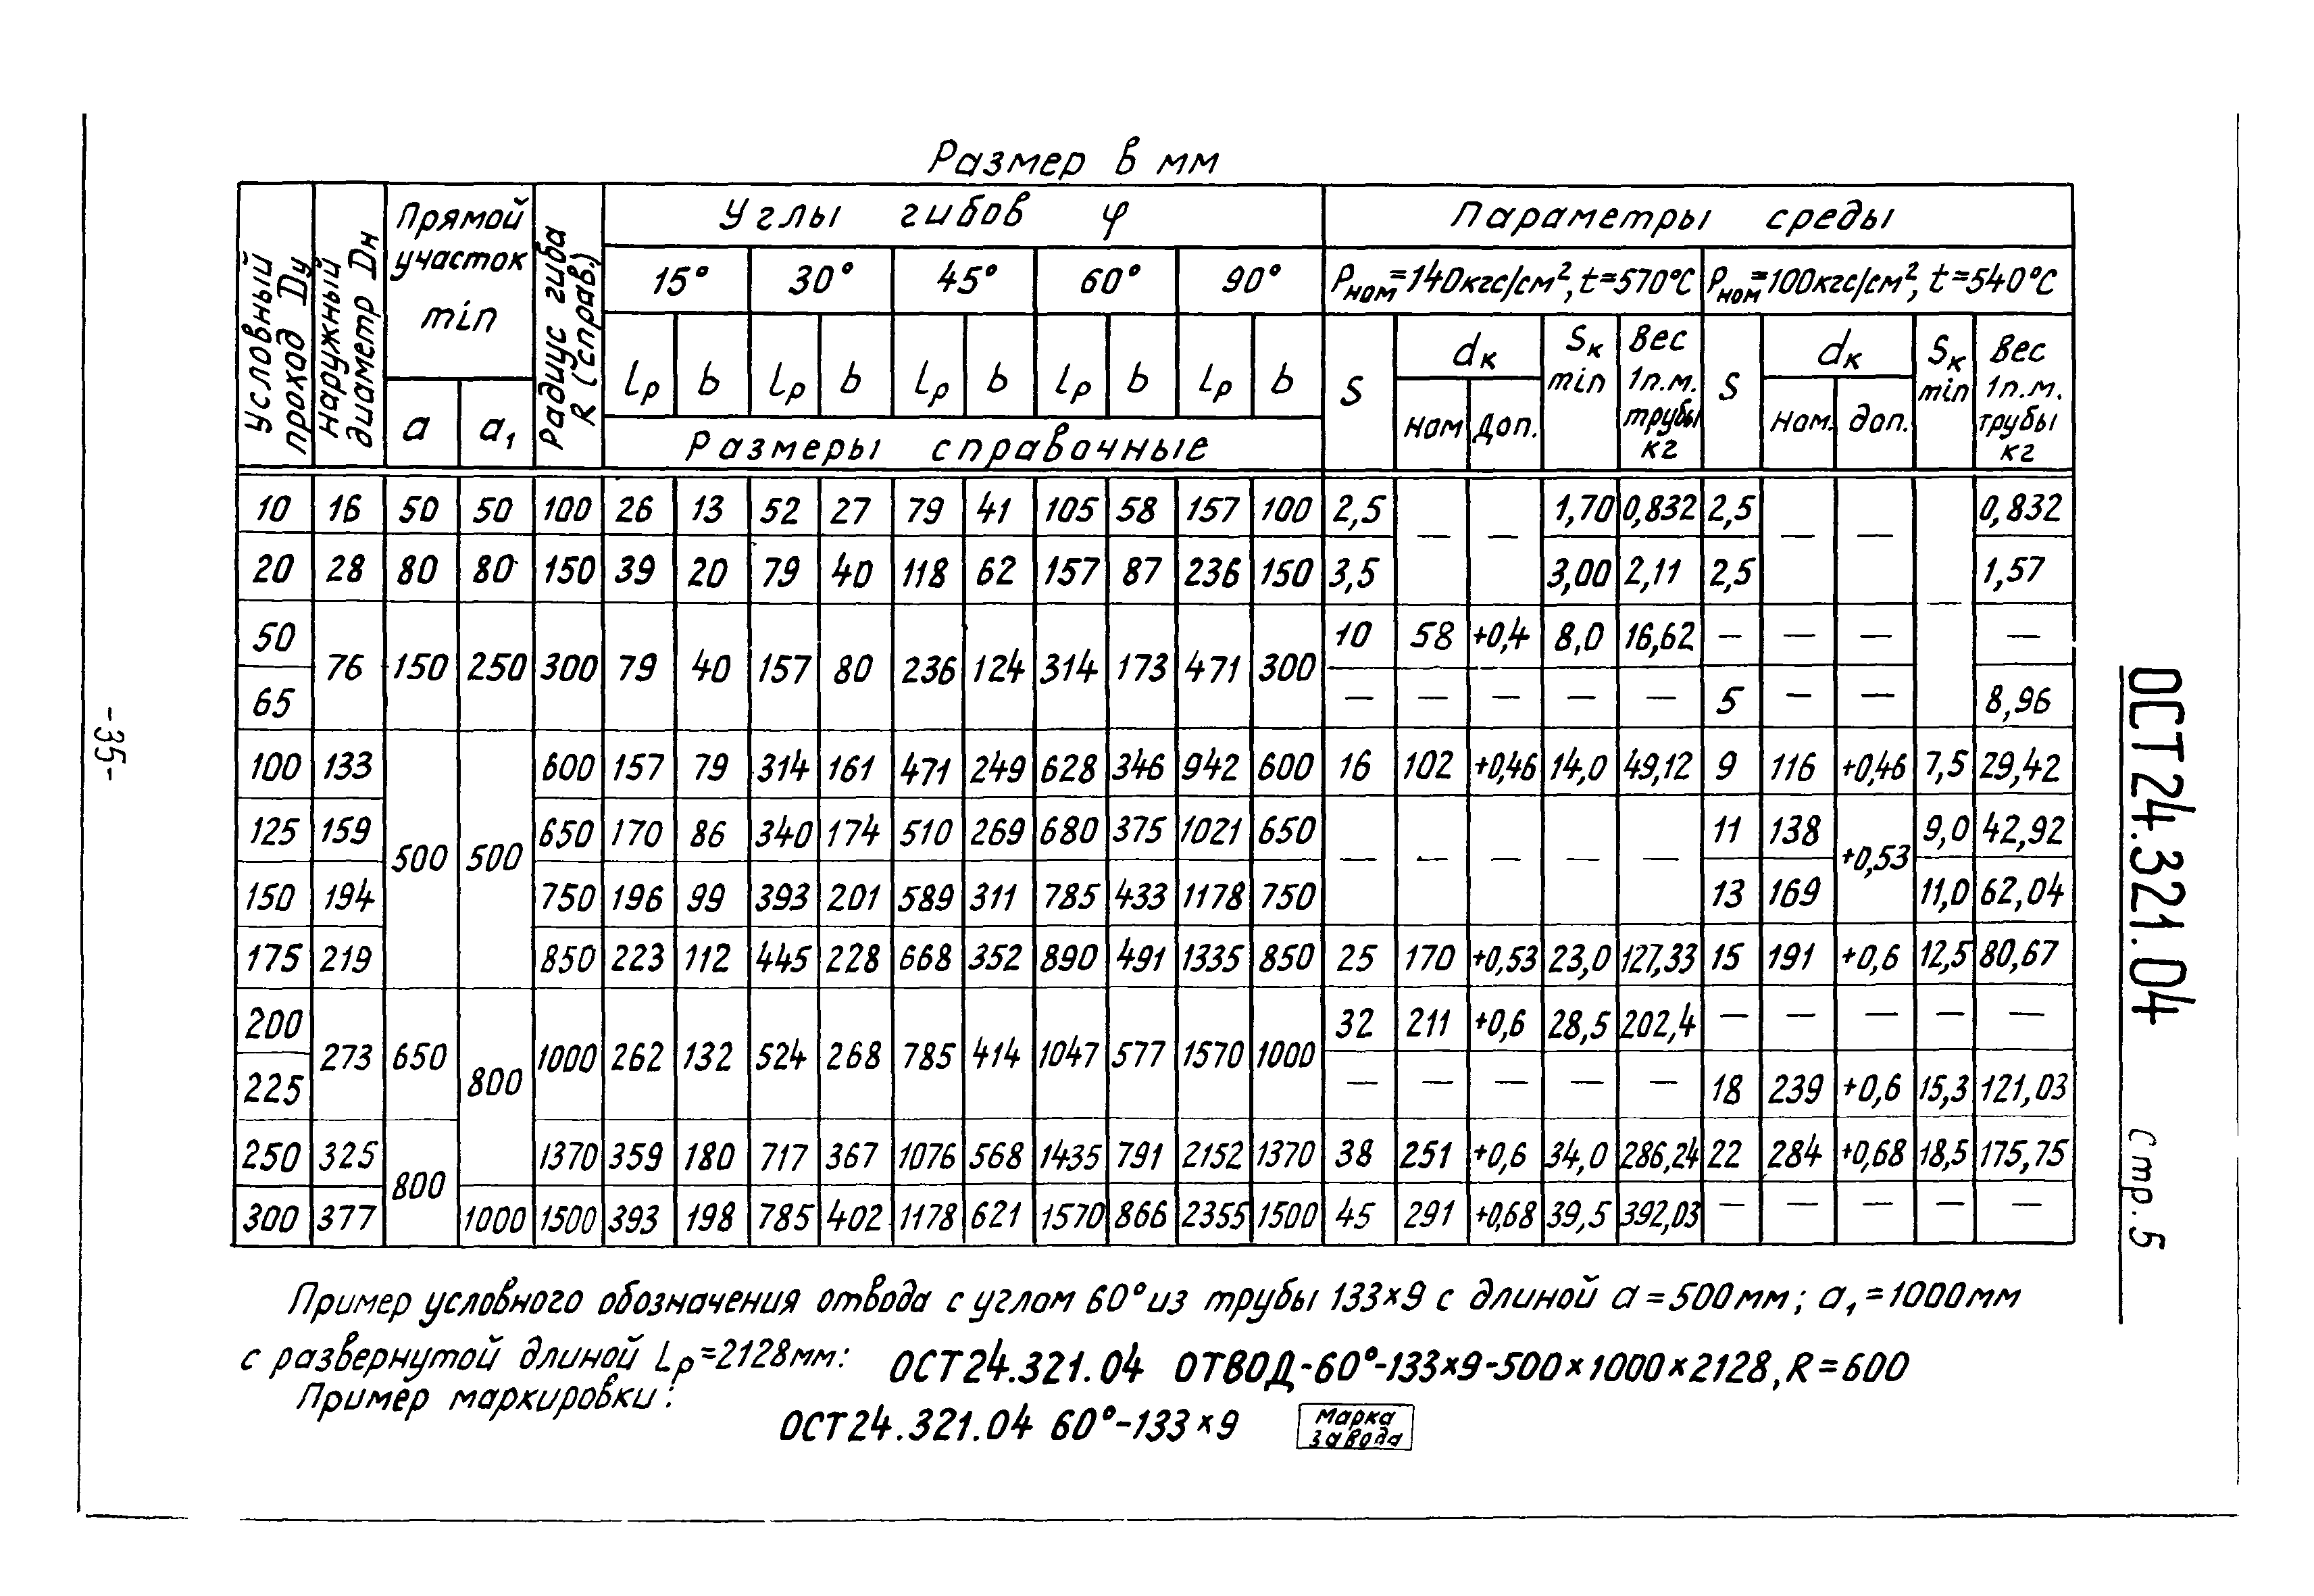 Размер в мм
Условный проход Dу
Наружный диаметр Dн
Прямой участок min
Радиус гиба R (справ.)
Углы гибов φ
Параметры среды
15° 30° 45° 60° 90°
Pном=140кгс/см², t=570°C Pном=100кгс/см², t=540°C
a a₁
Lр b Lр b Lр b Lр b Lр b
S dк Sк min Вес 1п.м. трубы кг S dк Sк min Вес 1п.м. трубы кг
ном доп. ном. доп.
Размеры справочные
10 16 50 50 100 26 13 52 27 79 41 105 58 157 100 2,5 — — 1,70 0,832 2,5 — — 0,832
20 28 80 80 150 39 20 79 40 118 62 157 87 236 150 3,5 3,00 2,11 2,5 1,57
50 10 58 +0,4 8,0 16,62 — — — —
76 150 250 300 79 40 157 80 236 124 314 173 471 300
65 — — — — — 5 — — 8,96
100 133 600 157 79 314 161 471 249 628 346 942 600 16 102 +0,46 14,0 49,12 9 116 +0,46 7,5 29,42
125 159 650 170 86 340 174 510 269 680 375 1021 650 11 138 9,0 42,92
500 500 — — — — — +0,53
150 194 750 196 99 393 201 589 311 785 433 1178 750 13 169 11,0 62,04
175 219 850 223 112 445 228 668 352 890 491 1335 850 25 170 +0,53 23,0 127,33 15 191 +0,6 12,5 80,67
200 32 211 +0,6 28,5 202,4 — — — — —
273 650 1000 262 132 524 268 785 414 1047 577 1570 1000
225 800 — — — — — 18 239 +0,6 15,3 121,03
250 325 1370 359 180 717 367 1076 568 1435 791 2152 1370 38 251 +0,6 34,0 286,24 22 284 +0,68 18,5 175,75
800
300 377 1000 1500 393 198 785 402 1178 621 1570 866 2355 1500 45 291 +0,68 39,5 392,03 — — — — —
Пример условного обозначения отвода с углом 60° из трубы 133×9 с длиной a=500мм; a₁=1000мм
с развернутой длиной Lр=2128мм: ОСТ24.321.04 ОТВОД-60°-133×9-500×1000×2128, R=600
Пример маркировки:
ОСТ24.321.04 60°-133×9 Марка завода
-35-
ОСТ24.321.04 Стр. 5